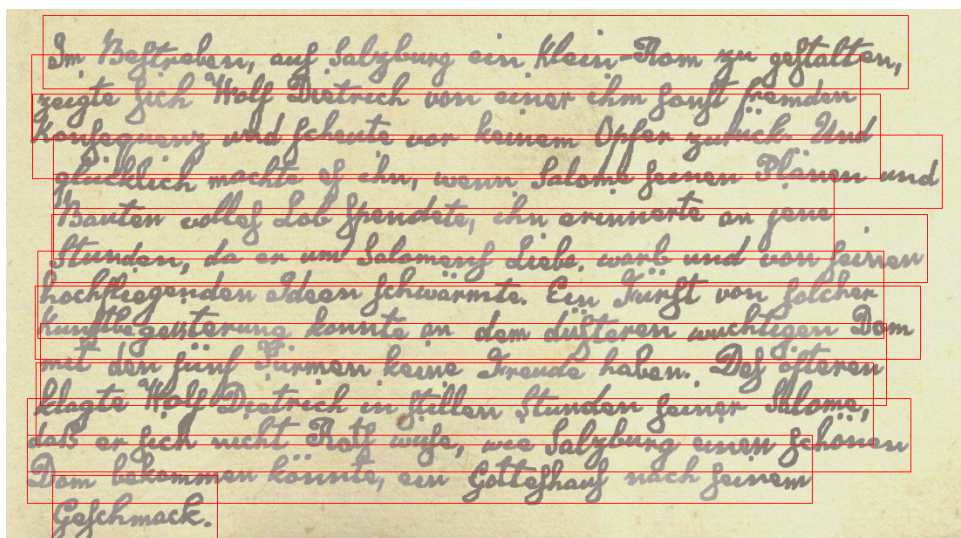 Im Bestreben, auf Salzburg ein Klein-Rom zu gestalten,
zeigte sich Wolf Dietrich von einer ihm sonst fremden
Konsequenz und scheute vor keinem Opfer zurück. Und
glücklich machte es ihn, wenn Salome seinen Plänen und
Bauten volles Lob spendete, ihn erinnerte an jene
Stunden, da er um Salomens Liebe warb und von seinen
hochfliegenden Ideen schwärmte. Ein Fürst von solcher
Kunstbegeisterung konnte an dem düsteren wuchtigen Dom
mit den fünf Türmen keine Freude haben. Des öfteren
klagte Wolf Dietrich in stillen Stunden seiner Salome,
daß er sich nicht Rat wisse, wie Salzburg einen schönen
Dom bekommen könnte, ein Gotteshaus nach seinem
Geschmack.